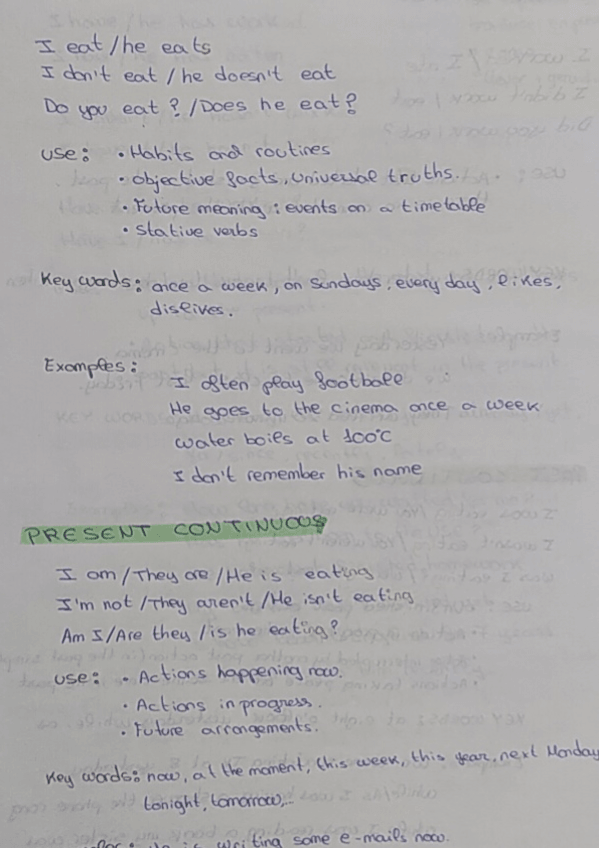 I eat /he eats
I don't eat / he doesn't eat
Do you eat ? /Does he eat?
use: • Habits and routines
• Objective facts, universal truths.
• Future meaning : events on a timetable
• Stative verbs
Key words: once a week, on Sundays, every day, likes,
dislikes.
Examples:
I often play football
He goes to the cinema once a week
water boils at 100°C
I don't remember his name
PRESENT CONTINUOUS
I am/They are /He is eating
I'm not /They aren't /He isn't eating
Am I/Are they /is he eating?
use: • Actions happening now.
• Actions in progress.
• Future arrangements.
Key words: now, at the moment, this week, this year, next Monday
tonight, tomorrow,...
is writing some e-mails now.